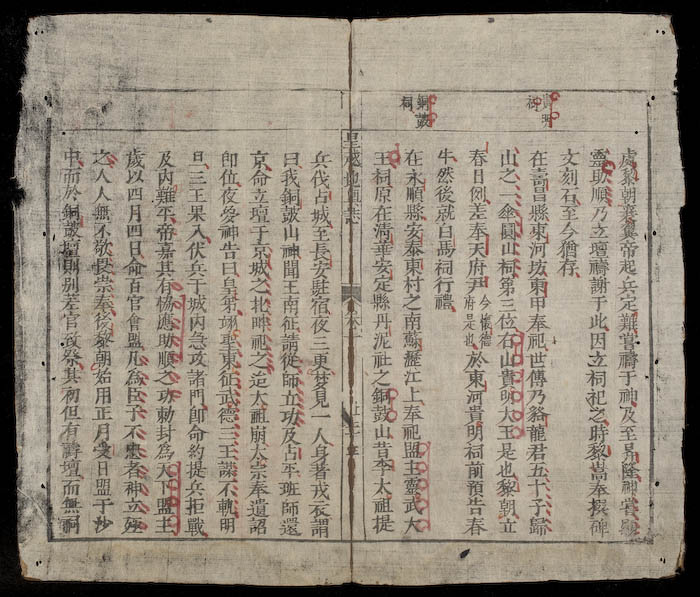 處黎朝襄翼帝起兵定難嘗禱于神及至昇隆神嘗顯
靈助順乃立壇禱謝于此因立祠祀之時黎嵩奉撰碑
文刻石至今猶存
貴明祠
在壽昌縣東河坊東甲奉祀世傳乃貉龍君五十子歸
山之一傘圓山祠第三位右山貴明大王是也黎朝立
春日例差奉天府尹今懷德府是也於東河貴明祠前預告春
牛然後就白馬祠行禮
銅鼓祠
在永順縣安泰東村之南蘇瀝江上奉祀盟主靈武大
王祠原在清華安定縣丹泥社之銅鼓山昔李太祖提
皇越地輿誌
兵伐占城至長安駐宿夜三更夢見一人身著戎衣謂
曰我銅鼓山神聞王南征請從師立功及占平班師還
京命立壇于京城之北歲祀之迨太祖崩太宗奉遺詔
即位夜夢神告曰皇弟翊聖東征武德三王謀不軌明
旦三王果入伏兵于城內急攻諸門即命約提兵拒戰
及內難平帝嘉其有協應助順之功勅封為天下盟主
歲以四月四日命百官會盟凡為臣子不忠者神立殛
之人人無不敬畏崇奉後黎朝始用正月變日盟于沙
中而於銅鼓壇則別差官致祭其初但有壽壇而無祠